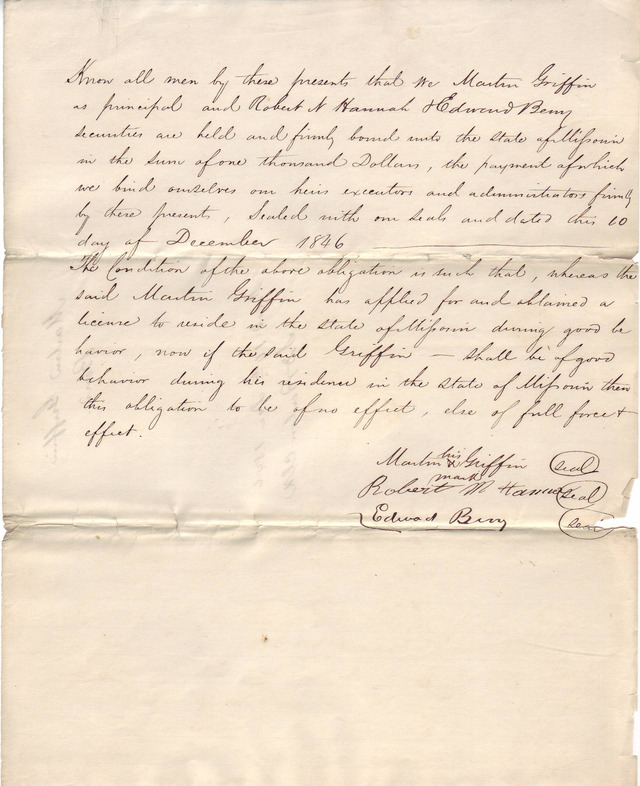 Know all men by these presents that we Martin Griffin
as principal and Robert N Hannah & Edward Berry
securities are held and firmly bound unto the state of Missouri
in the sum of one thousand Dollars, the payment of which
we bind ourselves our heirs executors and administrators firmly
by these presents, Sealed with our seals and dated this 10
day of December 1846
The Condition of the above obligation is such that, whereas the
said Martin Griffin has applied for and obtained a
license to reside in the state of Missouri during good be
havior, now if the said Griffin — shall be of good
behavior during his residence in the state of Missouri then
this obligation to be of no effect, else of full force &
effect.
his
Martin x Griffin seal
mark
Robert seal
Edward Berry seal